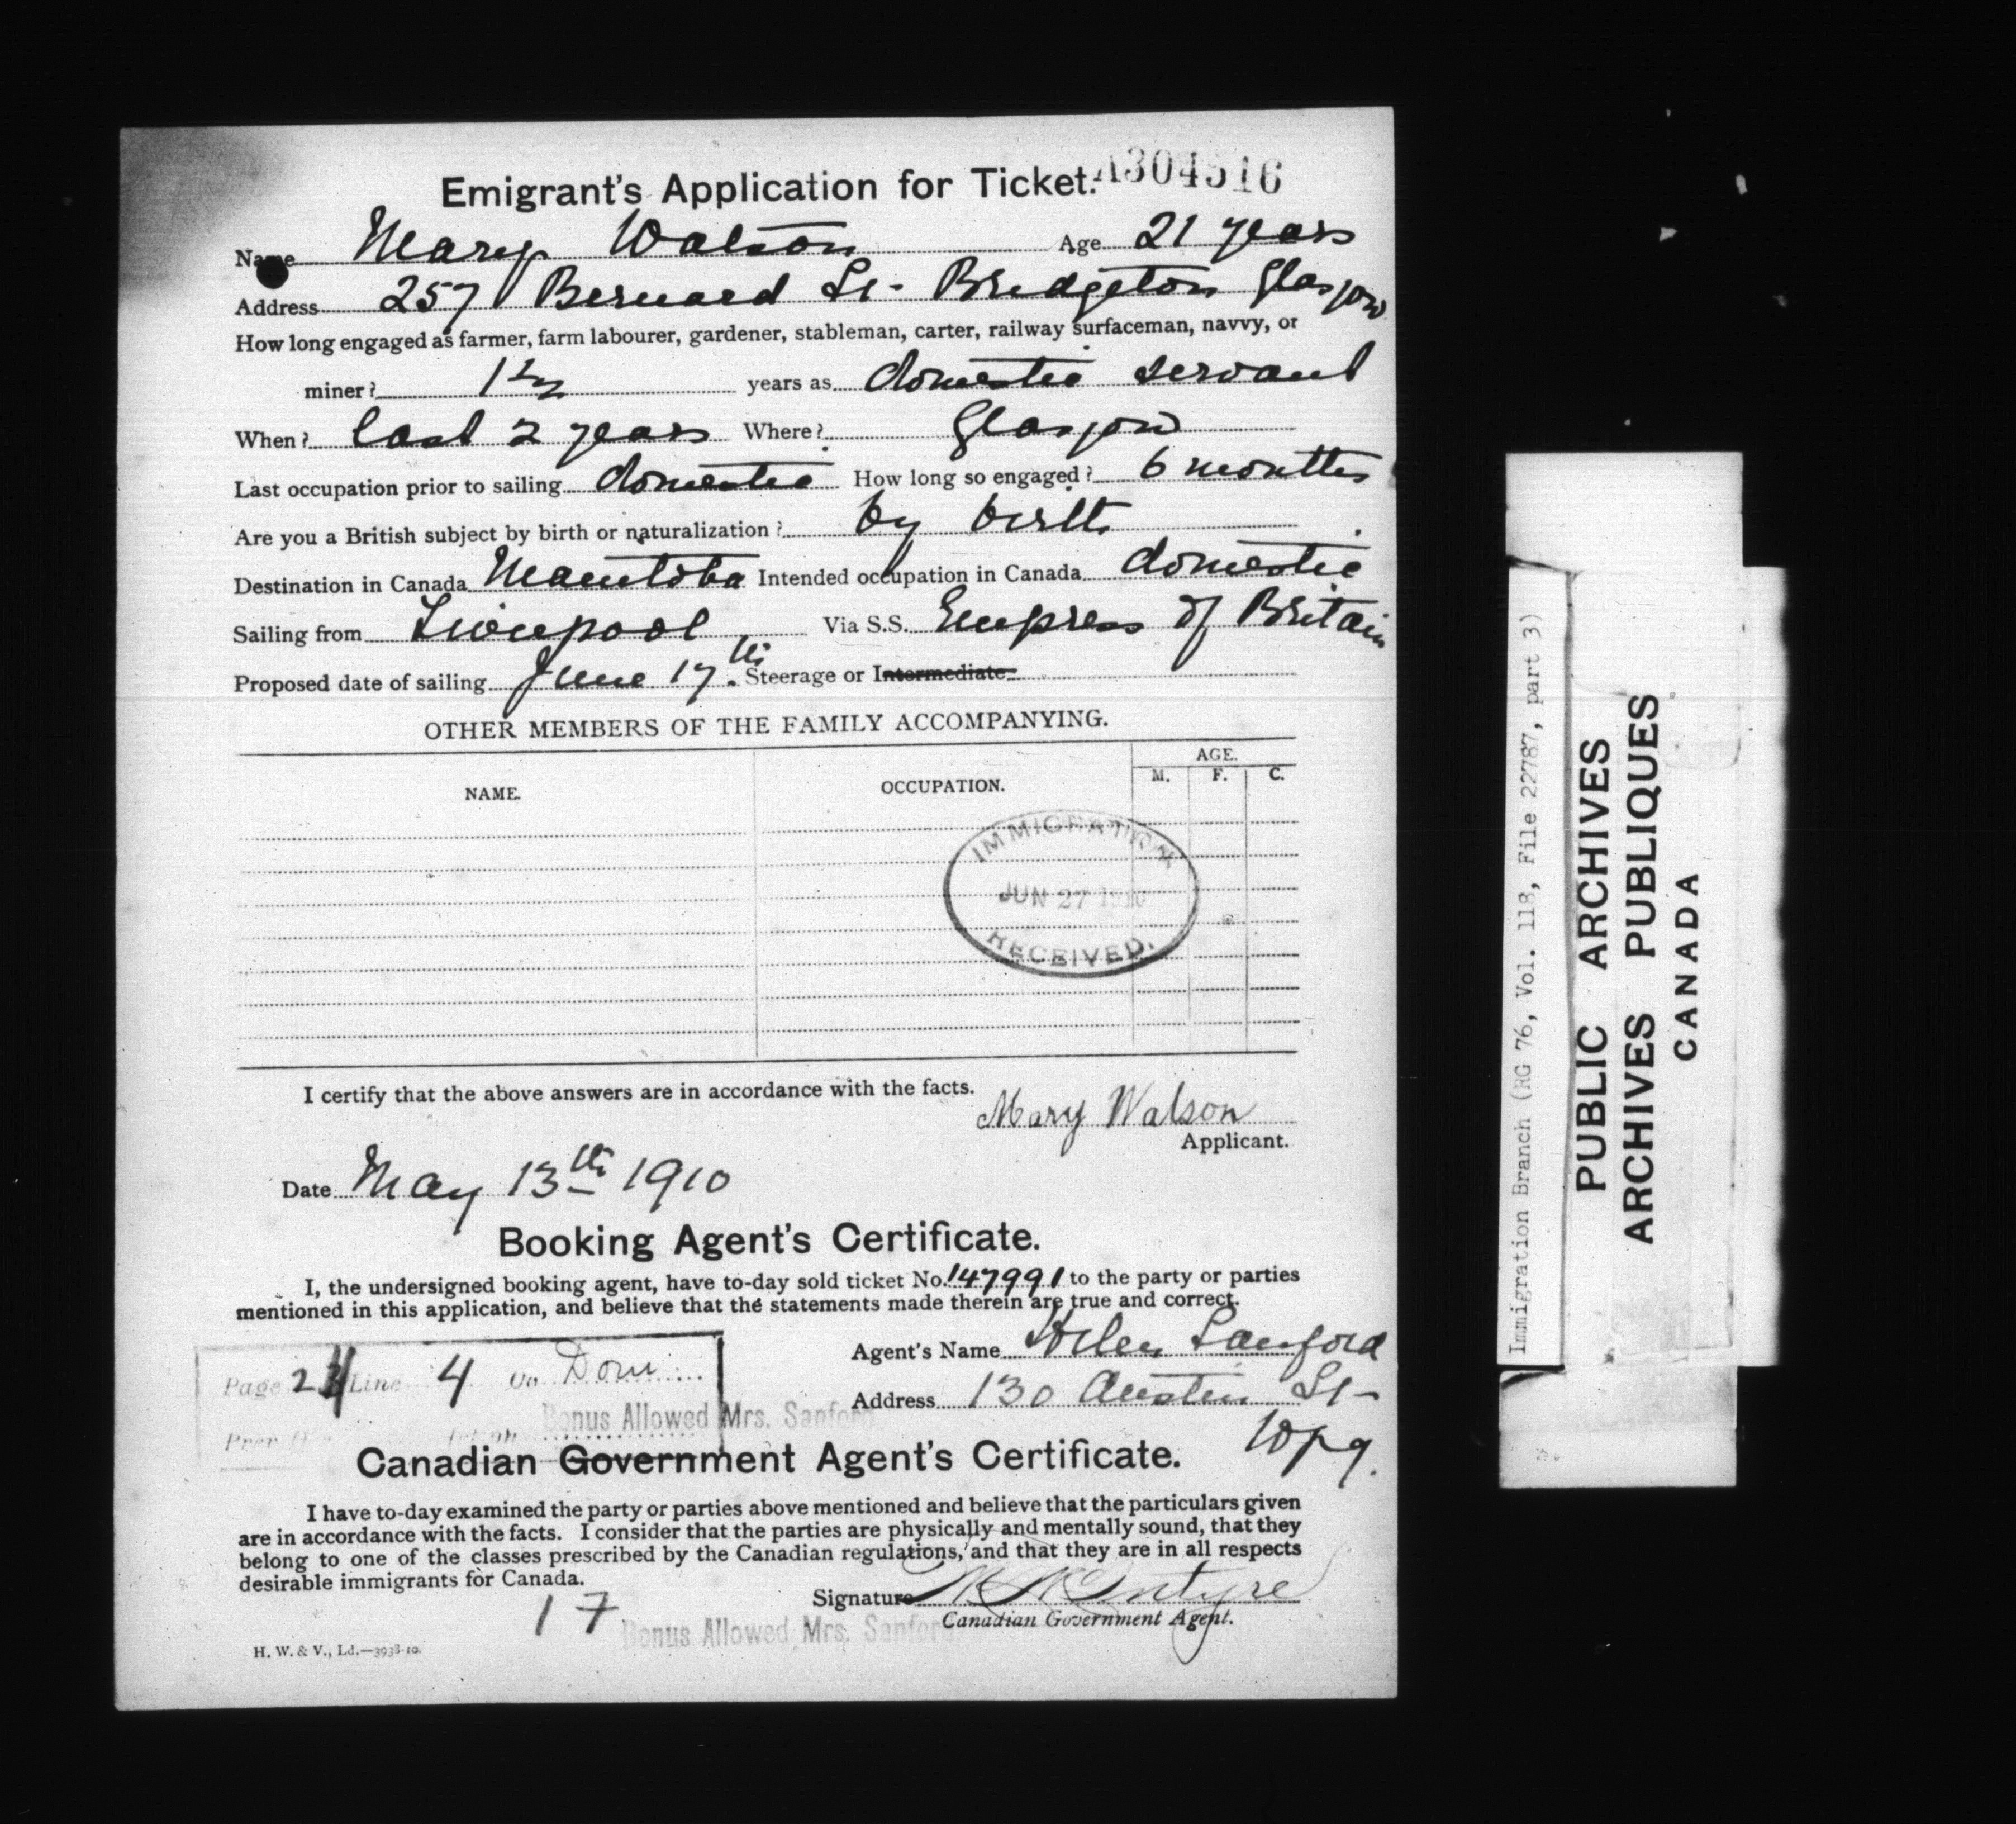 Emigrant's Application for Ticket. A304516
Name Mary Watson Age 21 years
Address 257 Bernard St- Bridgeton Glasgow
How long engaged as farmer, farm labourer, gardener, stableman, carter, railway surfaceman, navvy, or
miner? 1 1/2 years as domestic servant
When? last 2 years Where? Glasgow
Last occupation prior to sailing domestic How long so engaged? 6 months
Are you a British subject by birth or naturalization? by birth
Destination in Canada Manitoba Intended occupation in Canada domestic
Sailing from Liverpool Via S.S. Empress of Britain
Proposed date of sailing June 17th. Steerage or Intermediate
OTHER MEMBERS OF THE FAMILY ACCOMPANYING.
NAME. OCCUPATION. AGE.
M. F. C.
IMMIGRATION
JUN 27 1910
RECEIVED.
I certify that the above answers are in accordance with the facts.
Mary Watson
Applicant.
Date May 13th 1910
Booking Agent's Certificate.
I, the undersigned booking agent, have to-day sold ticket No. 147991 to the party or parties
mentioned in this application, and believe that the statements made therein are true and correct.
Agent's Name Helen Sanford
Page 2 Line 4 On Dom
Address 130 Austin St-
Wpg.
Bonus Allowed Mrs. Sanford
Canadian Government Agent's Certificate.
I have to-day examined the party or parties above mentioned and believe that the particulars given
are in accordance with the facts. I consider that the parties are physically and mentally sound, that they
belong to one of the classes prescribed by the Canadian regulations, and that they are in all respects
desirable immigrants for Canada.
Signature McIntyre
Canadian Government Agent.
17
Bonus Allowed Mrs. Sanford
H. W. & V., Ld.—3938-10.
Immigration Branch (RG 76, Vol. 113, File 22787, part 3)
PUBLIC ARCHIVES
ARCHIVES PUBLIQUES
CANADA